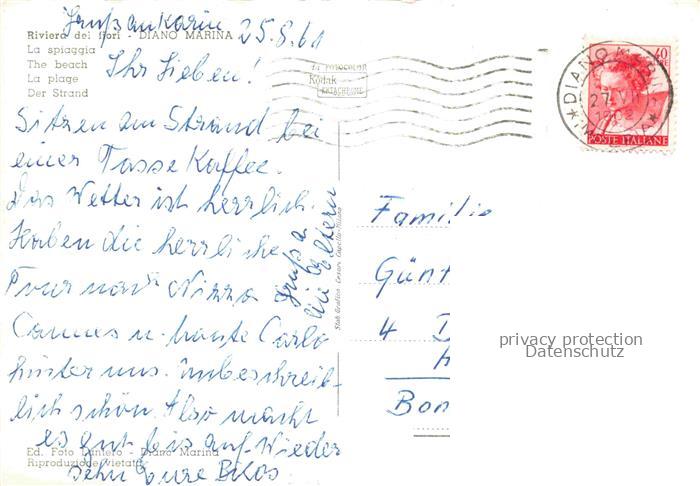 Gruß an Karin
Riviera dei fiori - DIANO MARINA
25.8.61
La spiaggia
The beach
La plage
Der Strand
Ihr Lieben!
Sitzen am Strand bei
einer Tasse Kaffee.
Das Wetter ist herrlich.
Haben die herrliche
Tour nach Nizza
Cannes u. Monte Carlo
hinter uns. Unbeschreib-
lich schön. Also macht
es gut bis auf Wieder
sehn Eure
Ed. Foto - Diano Marina
Riproduzione vietata
Gruß a
Eltern
Stab. Grafico Cesare Capello - Milano
FOTOCOLOR
Kodak
EKTACHROME
DIANO MARINA
27
40
POSTE ITALIANE
Familie
Günt
4 D
Bon
privacy protection
Datenschutz